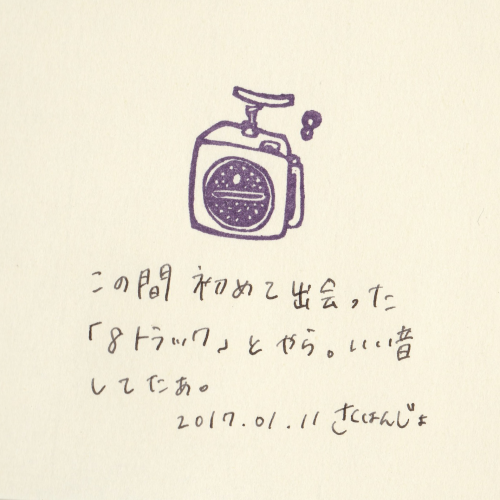 8
この間 初めて出会った
「8トラック」とやら。いい音
してたぁ。
2017.01.11 さくはんじょ